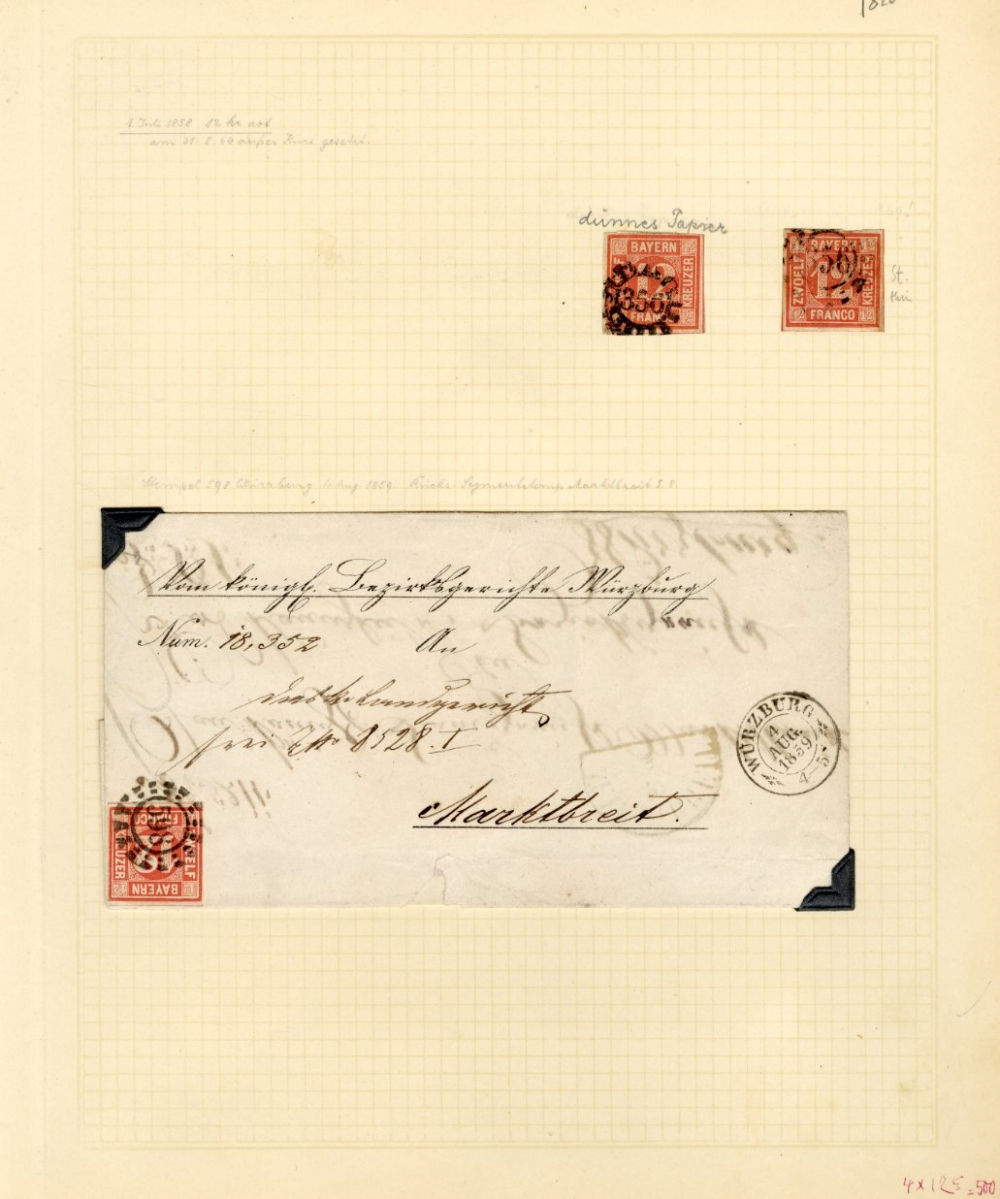 1. Juli 1858 12 kr rot
am 31. 8. 66 außer Kurs gesetzt.
dünnes Papier
BAYERN
12
KREUZER
356
FRANCO
BAYERN
ZWOELF
12
KREUZER
FRANCO
St.
Stempel 598 Würzburg 4 Aug 1859. Rücks. Segmentstemp. Marktbreit 5. 8.
Vom königl. Bezirksgerichte Würzburg
Num. 18,352 An
das k. Landgericht
frei 8528. I
Marktbreit.
WÜRZBURG
4
AUG.
1859
4–5
598
FRANCO
12
ZWOELF
KREUZER
BAYERN
4 x 125 = 500